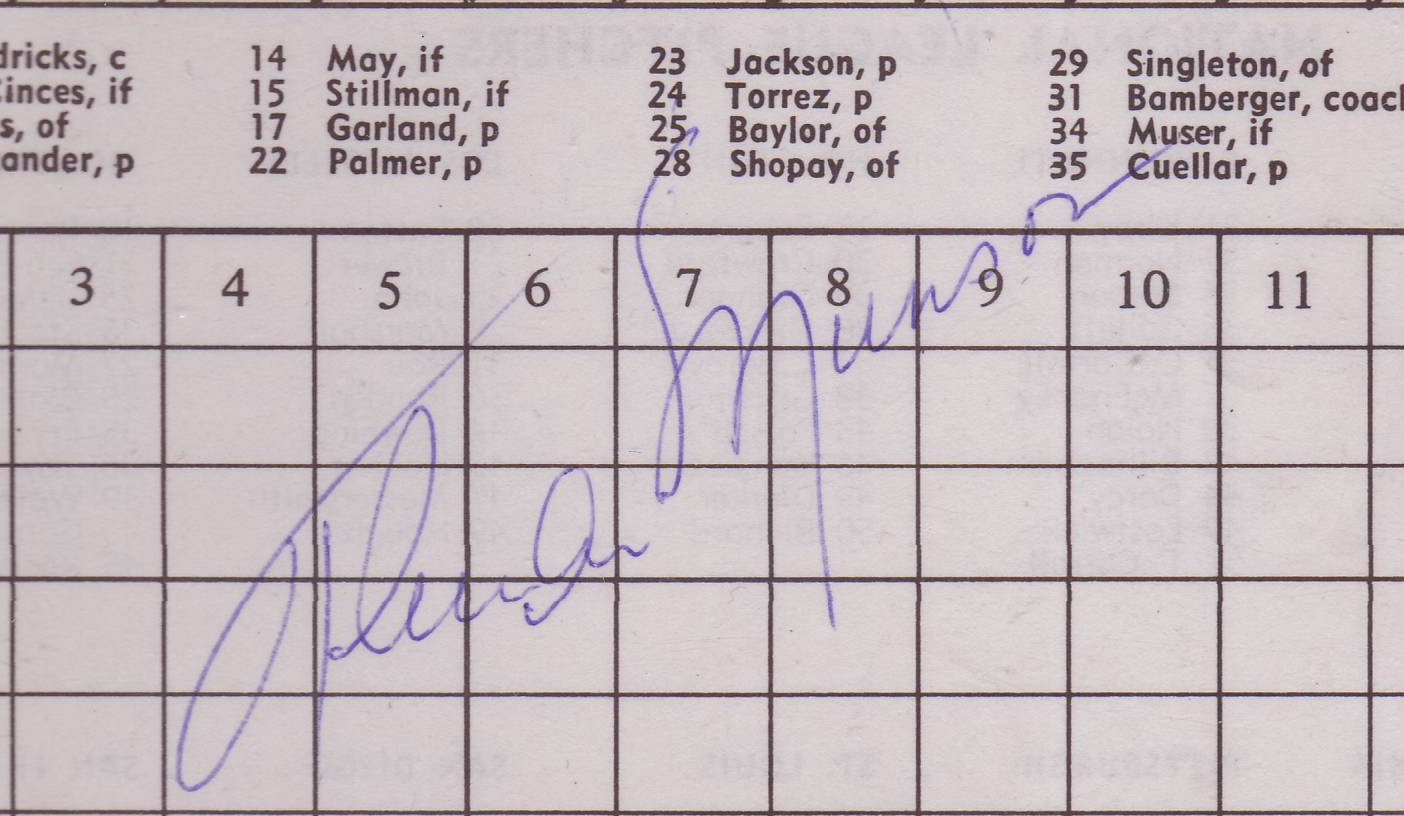 dricks, c 14 May, if 23 Jackson, p 29 Singleton, of
Cinces, if 15 Stillman, if 24 Torrez, p 31 Bamberger, coach
s, of 17 Garland, p 25 Baylor, of 34 Muser, if
ander, p 22 Palmer, p 28 Shopay, of 35 Cuellar, p
3 4 5 6 7 8 9 10 11
Thurman Munson